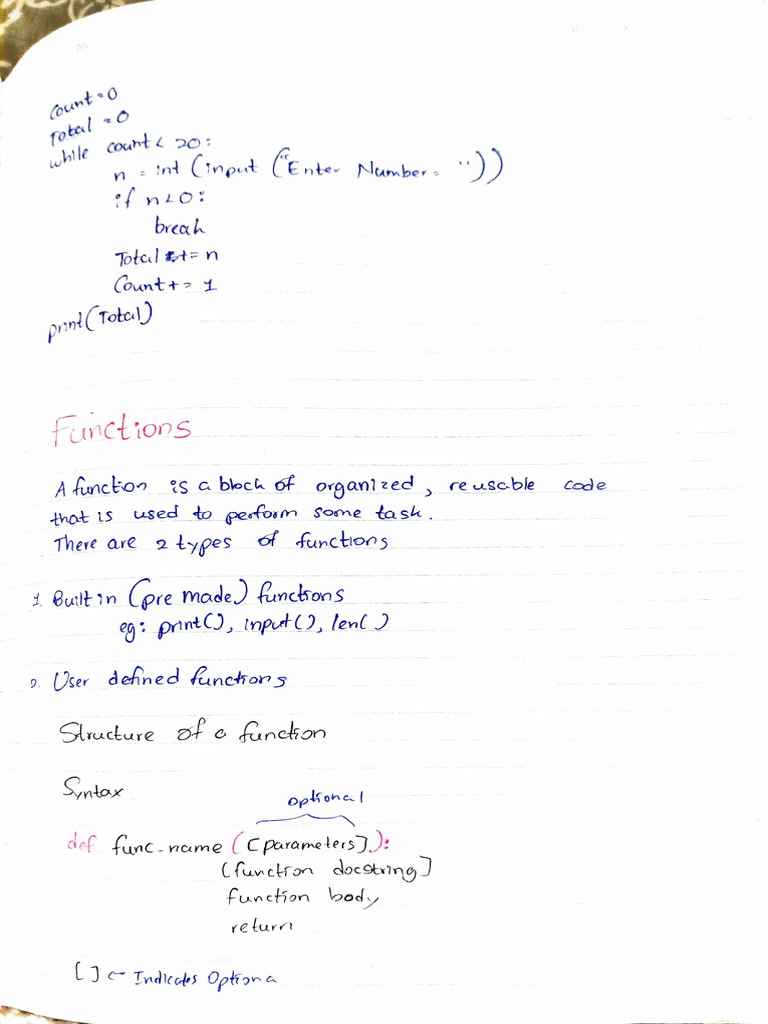 Count = 0
Total = 0
while count < 20:
n = int (input ("Enter Number = "))
if n < 0:
break
Total += n
Count += 1
print(Total)
Functions
A function is a block of organized, reusable code
that is used to perform some task.
There are 2 types of functions
1. Built in (pre made) functions
eg: print(), input(), len( )
2. User defined functions
Structure of a function
Syntax
optional
def func_name ([parameters]):
[function docstring]
function body
return
[ ] ← Indicates Optiona